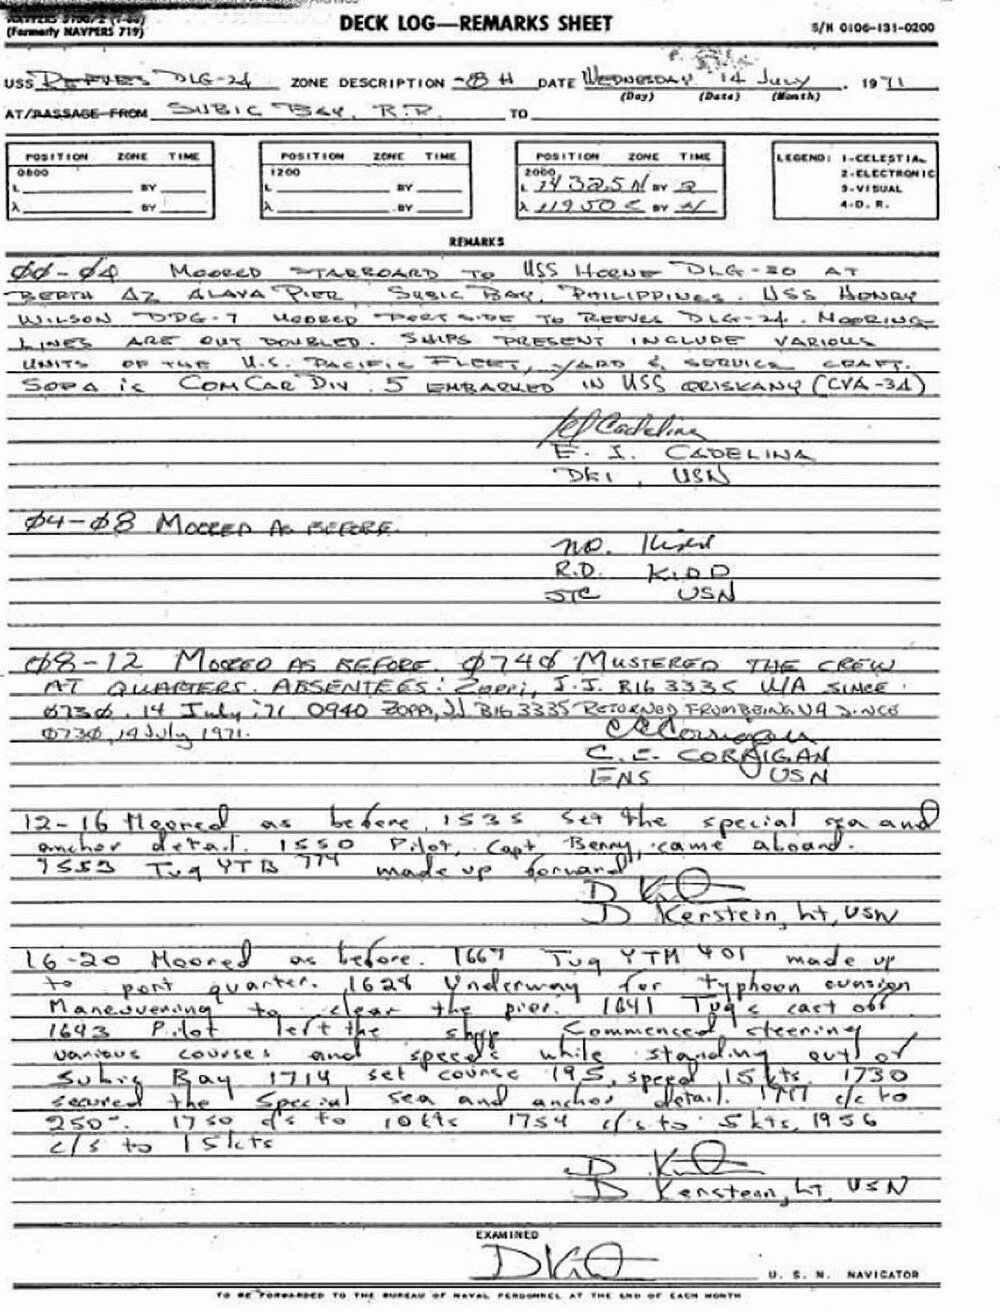 NAVPERS 3100/2 (1-68)
(Formerly NAVPERS 719)
DECK LOG—REMARKS SHEET
S/N 0106-131-0200
USS REEVES DLG-24 ZONE DESCRIPTION -8 H DATE WEDNESDAY 14 July, 1971
(Day) (Date) (Month)
AT/PASSAGE FROM SUBIC BAY, R.P. TO
POSITION ZONE TIME POSITION ZONE TIME POSITION ZONE TIME LEGEND: 1-CELESTIAL
0800 1200 2000 2-ELECTRONIC
L BY L BY L 14 32.5 N BY 2 3-VISUAL
λ BY λ BY λ 119 50 E BY 4-D. R.
REMARKS
00-04 MOORED STARBOARD TO USS HORNE DLG-30 AT
BERTH A2 ALAVA PIER, SUBIC BAY, PHILIPPINES. USS HENRY
WILSON DDG-7 MOORED PORT SIDE TO REEVES DLG-24. MOORING
LINES ARE OUT DOUBLED. SHIPS PRESENT INCLUDE VARIOUS
UNITS OF THE U.S. PACIFIC FLEET, YARD & SERVICE CRAFT.
SOPA IS COMCARDIV 5 EMBARKED IN USS ORISKANY (CVA-34)
E. I. CADELINA
DK1, USN
04-08 MOORED AS BEFORE.
R.D. Kidd
R.D. KIDD
STC USN
08-12 MOORED AS BEFORE. 0740 MUSTERED THE CREW
AT QUARTERS. ABSENTEES: Zoppi, J.J. B163335 U/A SINCE
0730, 14 July 71 0940 ZOPPI, JJ B163335 RETURNED FROM BEING UA SINCE
0730, 14 July 1971.
CE Corrigan
C. E. CORRIGAN
ENS USN
12-16 Moored as before, 1535 Set the special sea and
anchor detail. 1550 Pilot, Capt Benny, came aboard.
1553 Tug YTB 774 made up forward
D Kerstein, Lt, USN
16-20 Moored as before. Tug YTM 401 made up
to port quarter. 1628 Underway for typhoon evasion
Maneuvering to clear the pier. 1641 Tugs cast off
1643 Pilot left the ship Commenced steering
various courses and speeds while standing out of
Subic Bay 1714 set course 195, speed 15 kts. 1730
secured the Special sea and anchor detail. c/c to
250°. 1750 c/s to 10 kts 1754 c/s to 5 kts, 1956
c/s to 15 kts
D Kerstein, Lt, USN
EXAMINED
U. S. N. NAVIGATOR
TO BE FORWARDED TO THE BUREAU OF NAVAL PERSONNEL AT THE END OF EACH MONTH